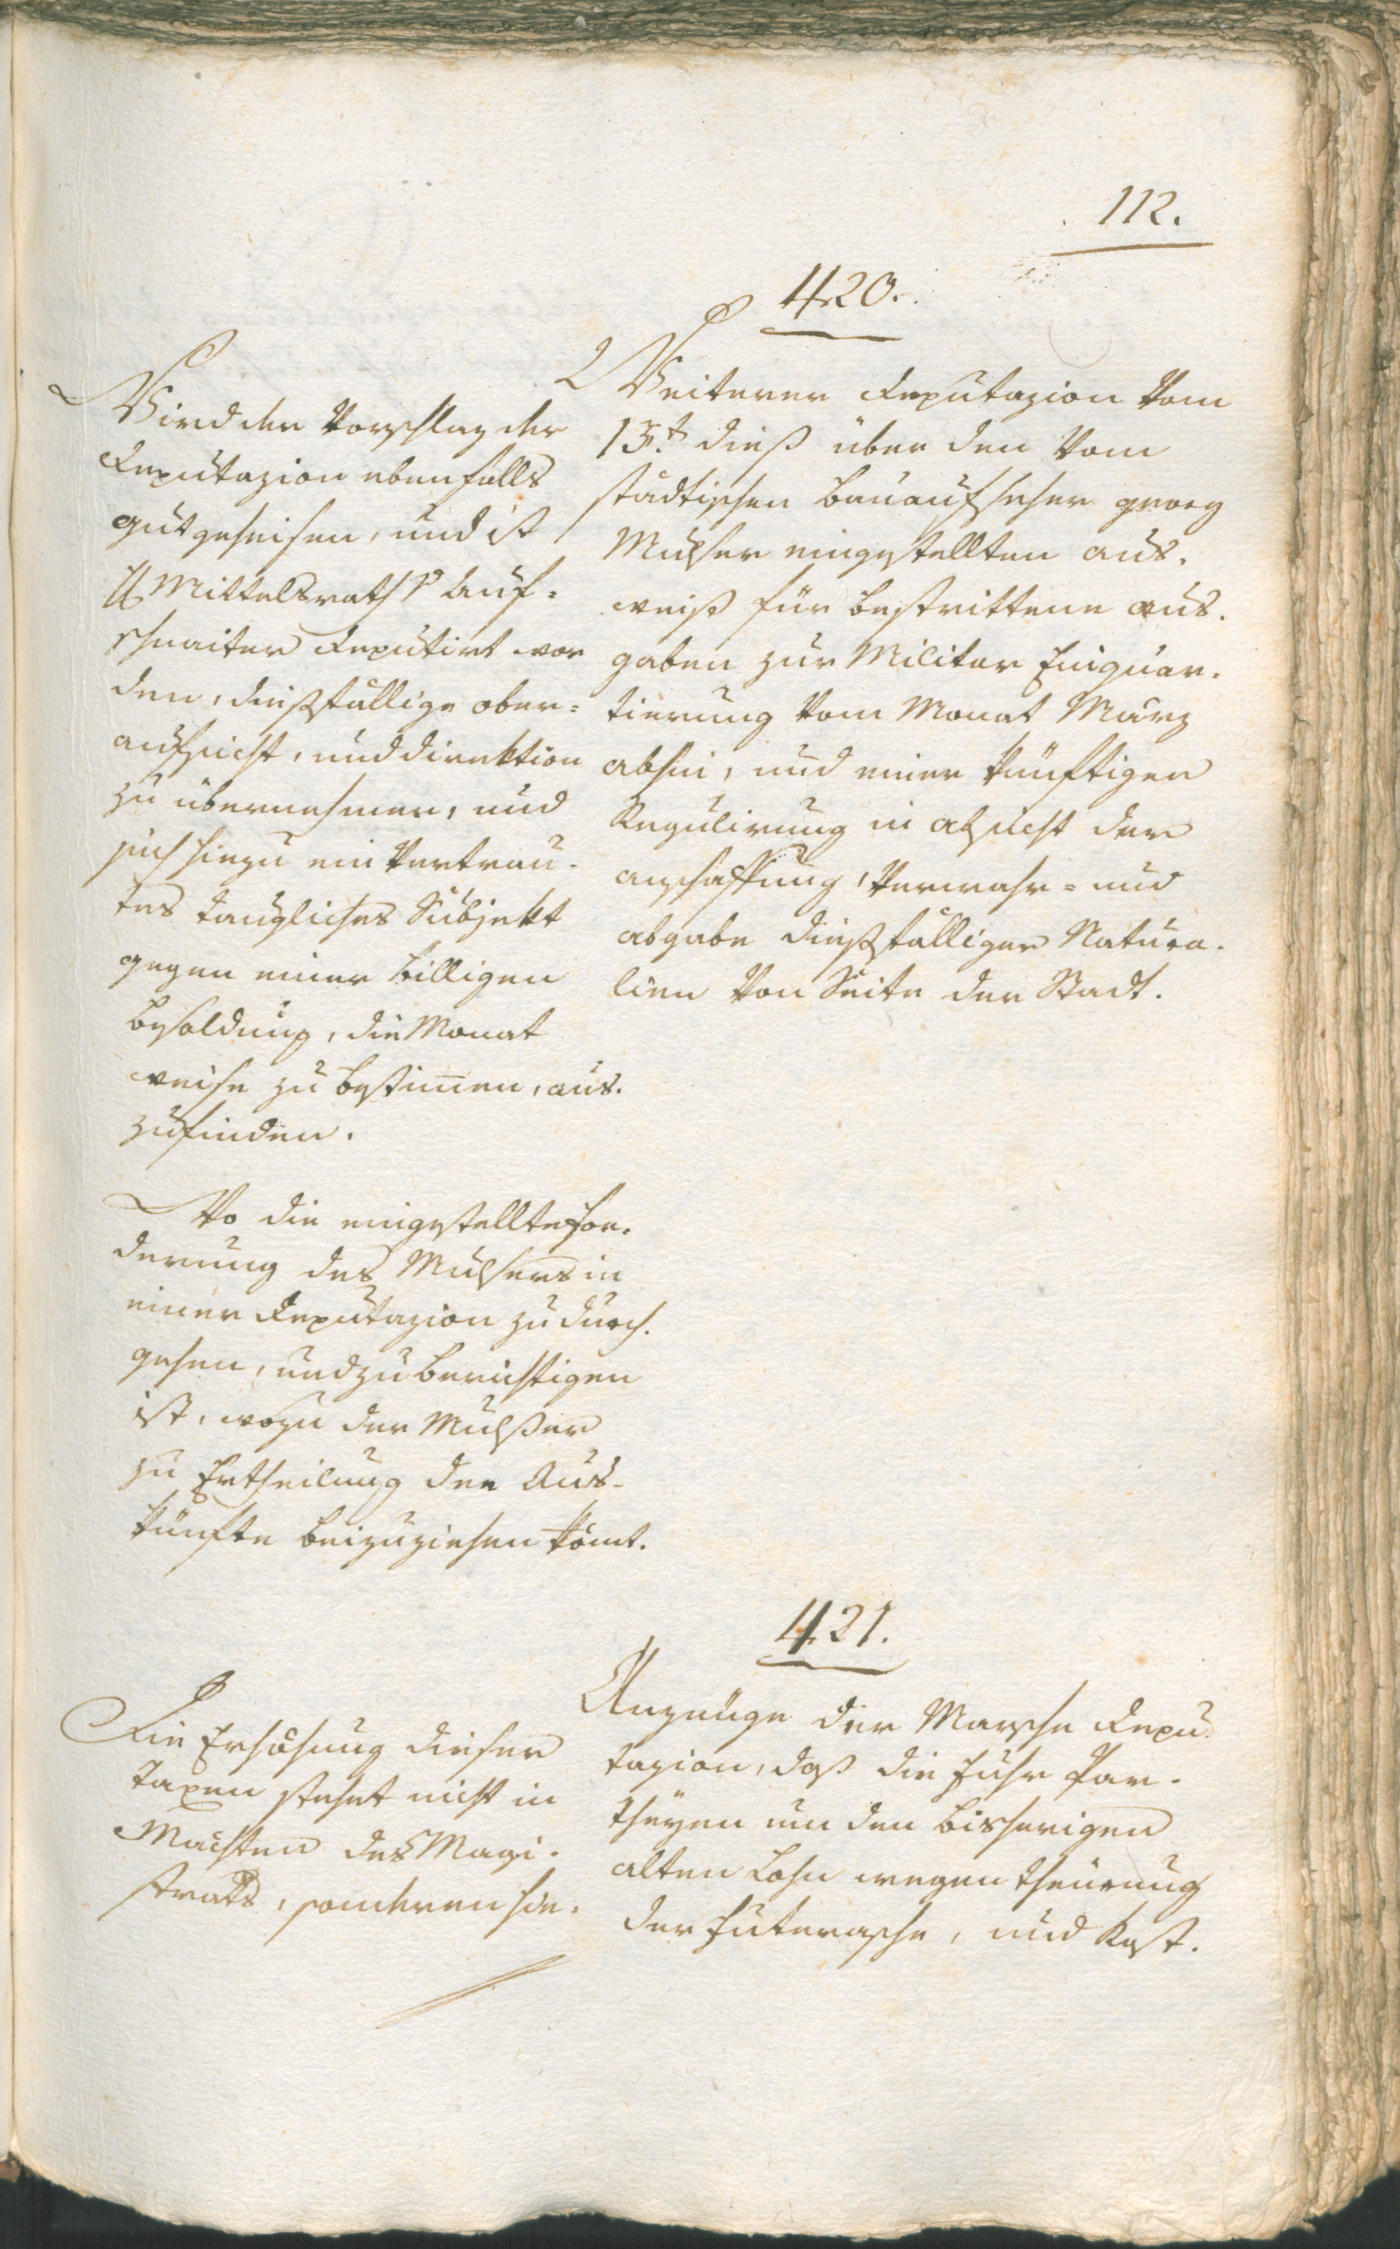 112.
420.
Weiterer Deputazion vom
13.t dieß über den vom
städtischen Bauaufseher Georg
Mulser eingestellten Aus-
weiß für bestrittene Aus-
gaben zur Militar Einquar-
tierung vom Monat März
abhin, und einer künftigen
Regulirung in Absicht der
Anschaffung, Verwahr- und
Abgabe dießfälliger Natura-
lien von Seite der Stadt.
Wird der Vorschlag der
Deputazion ebenfalls
gutgeheisen, und ist
H Mittelsraths Auf-
schnaiter deputirt wor
den, dießfällige Ober-
aufsicht, und Direktion
zu übernehmen, und
sich hiezu ein vertrau-
tes taugliches Subjekt
gegen einer billigen
Besoldung, die Monat
weise zu bestimen, aus-
zufinden.
Wo die eingestellte For-
derung des Mulsers in
einer Deputazion zu durch-
gehen, und zu berichtigen
ist, wozu der Mulßer
zu Ertheilung der Aus-
künfte beizuziehen kömt.
421.
Anzeüge der Marsche Depu-
tazion, daß die Fuhr Par-
theyen um den bisherigen
alten Lohn wegen Theürung
der Futerasche, und Kost-
Die Erhöhung dieser
Taxen stehet nicht in
Mächten des Magi-
strats, sondern hie-